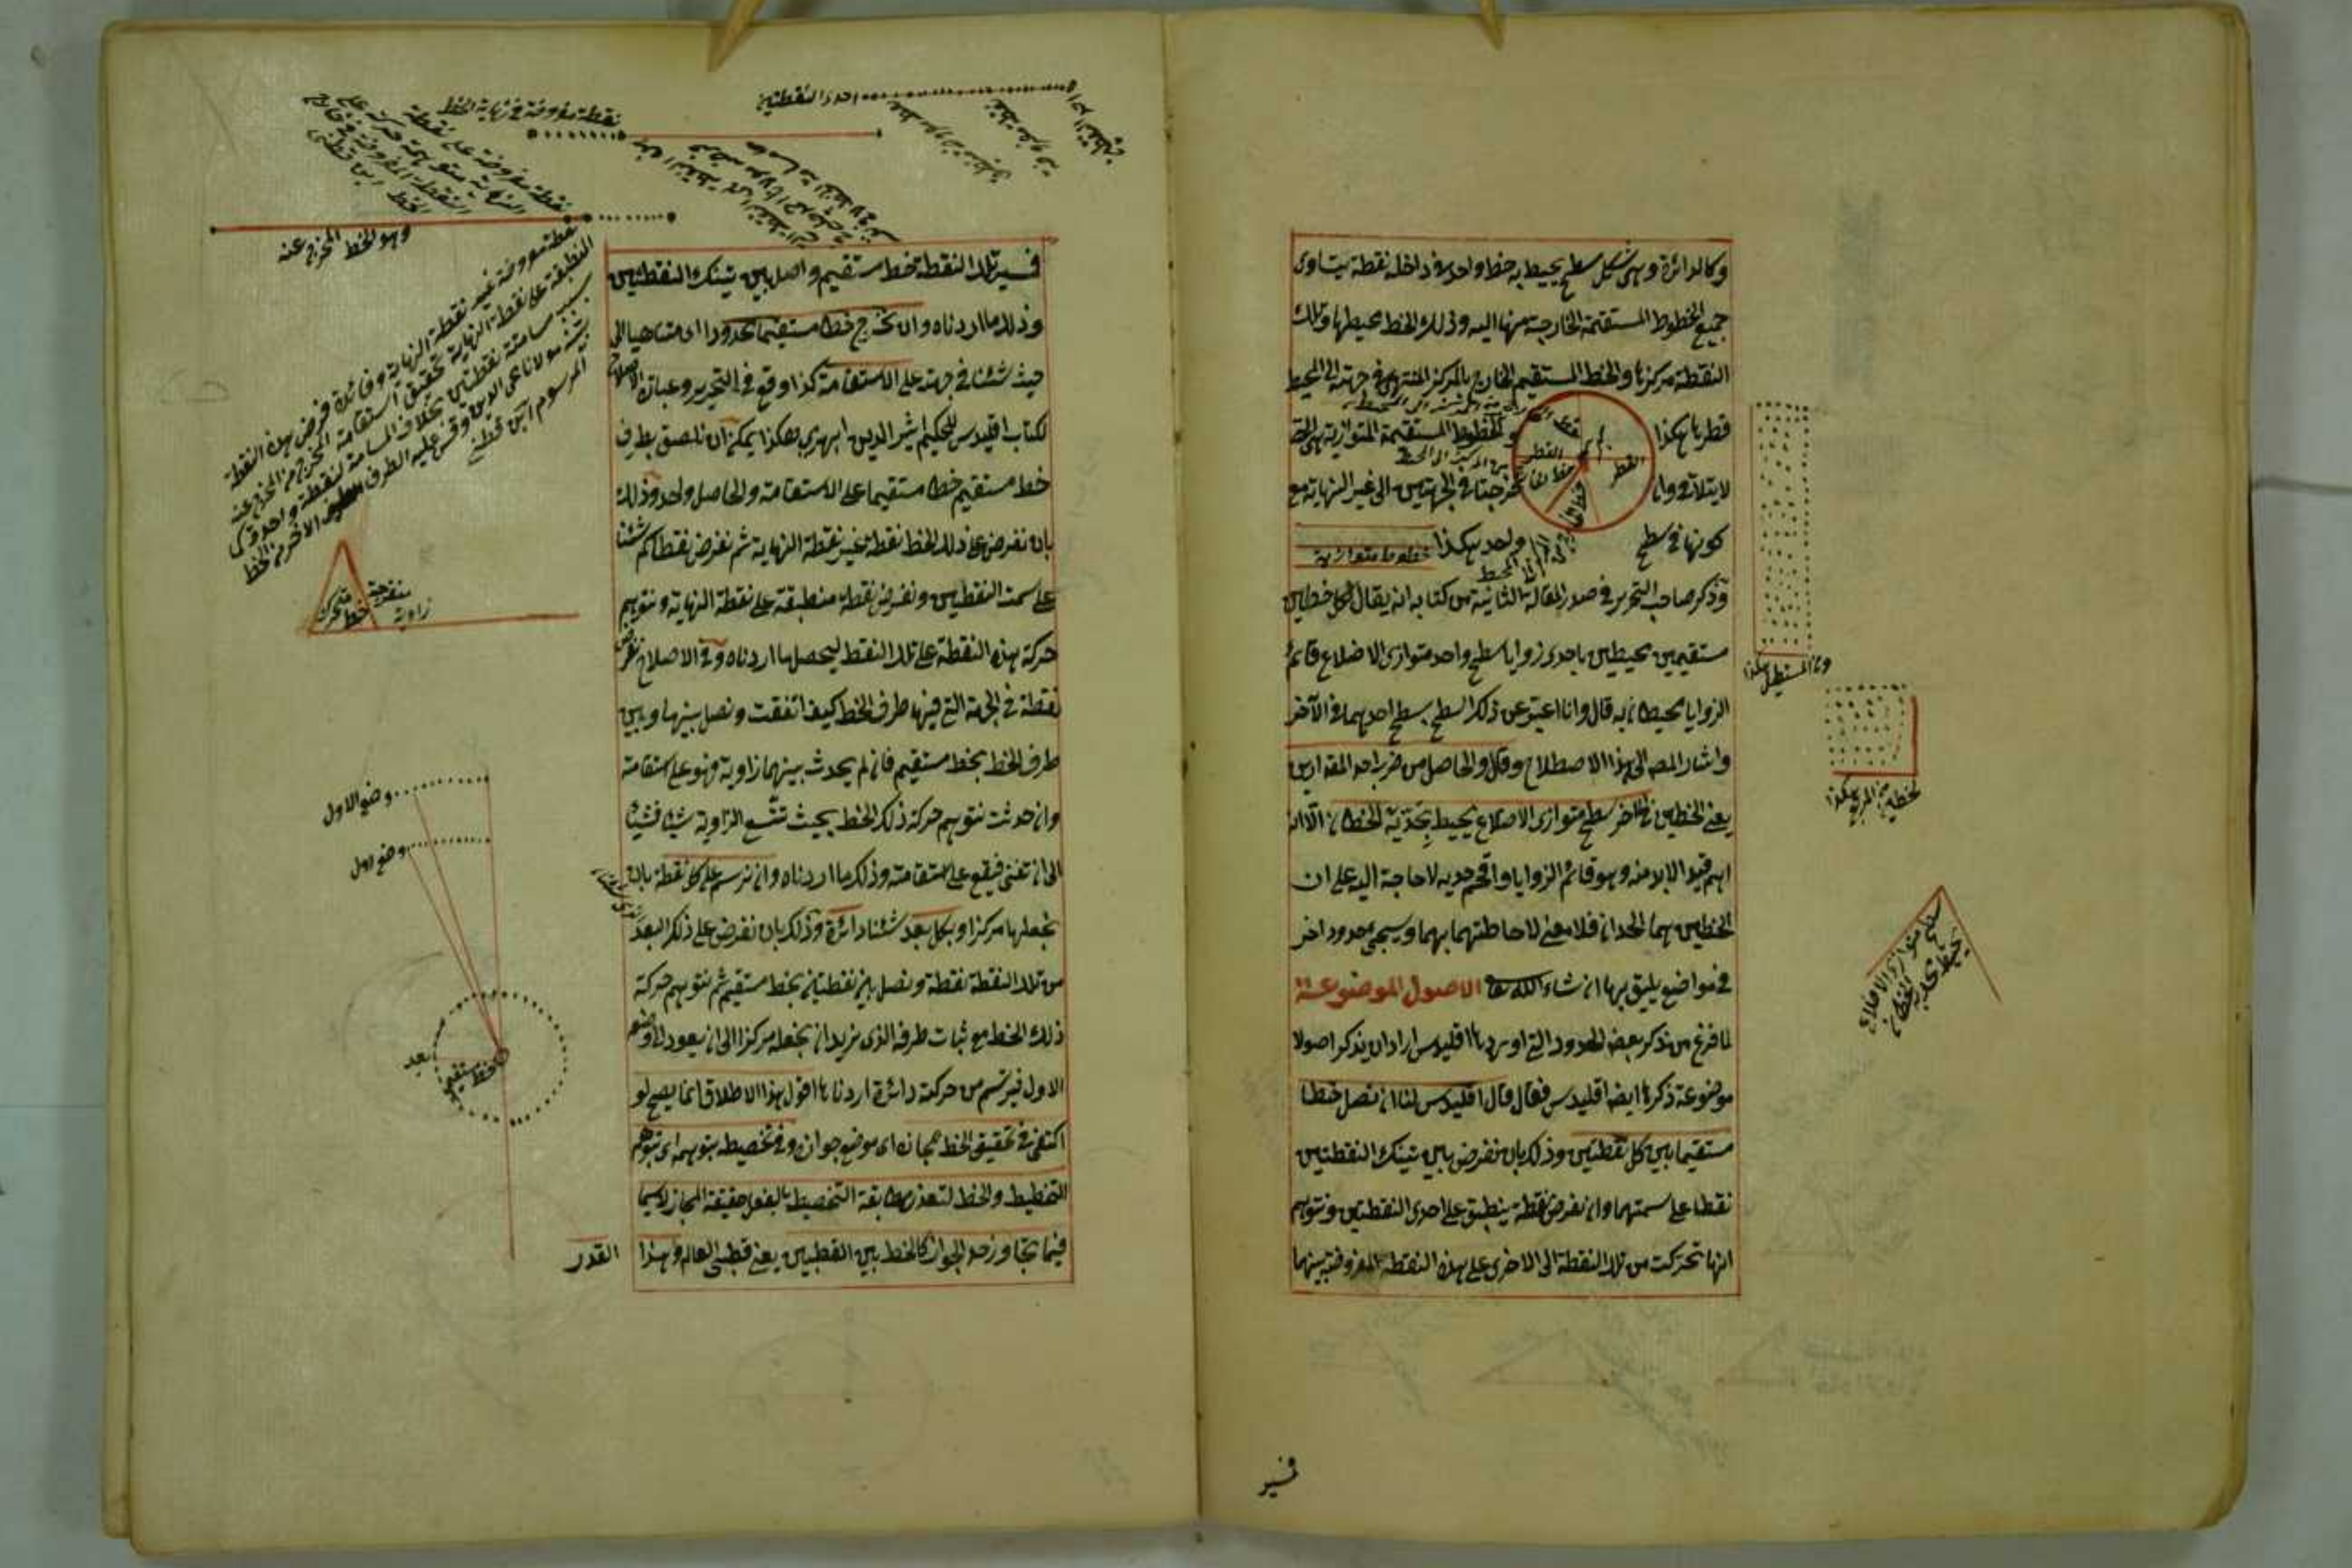 وكالدائرة وهي شكل سطح يحيط به خط واحد وفي داخله نقطة يتساوى
جميع الخطوط المستقيمة الخارجة منها اليه وذلك الخط محيطها وتلك
النقطة مركزها والخط المستقيم الخارج بالمركز المنتهى في جهته الى المحيط
قطرها هكذا
والخطوط المستقيمة المتوازية هي التي
لا يتلاقى وان اخرجت في الجهتين الى غير النهاية مع
كونها في سطح واحد هكذا
خطوط متوازية
القطر
القطر
وذكر صاحب التحرير في صدر المقالة الثانية من كتابه انه يقال لكل خطين
مستقيمين محيطين باحدى زوايا سطح واحد متوازى الاضلاع قائم
الزوايا محيطان به قال وانا اعبر عن ذلك السطح بسطح احدهما في الآخر
واشار المصه الى هذا الاصطلاح وقال والحاصل من ضرب احد المقدارين
يعني الخطين في الآخر سطح متوازى الاضلاع يحيط بحديه الخطان الا انه
اهم قيدا لا بد منه وهو قائم الزوايا واقحم حديه لا حاجة اليه على ان
الخطين هما الحدان فلا معنى لاحاطتهما بهما وسيجئ حدود اخر
في مواضع يليق بها ان شاء الله تعا الاصول الموضوعة
لما فرغ من ذكر بعض الحدود التي اوردها اقليدس اراد ان يذكر اصولا
موضوعة ذكرها ايضا اقليدس فقال قال اقليدس لنا ان نصل خطا
مستقيما بين كل نقطتين وذلك بان نفرض بين تينك النقطتين
نقطا على سمتهما وان نفرض نقطة ينطبق على احدى النقطتين ونتوهم
انها تحركت من تلك النقطة الى الاخرى على هذه النقطة المفروضة بينهما
واما المستطيل هكذا
المربع هكذا
سطح متوازى الاضلاع
يحيط بحديه الخطان
فسير
فسير تلك النقطة خط مستقيم واصل بين تينك النقطتين
وذلك ما اردناه وان نخرج خطا مستقيما محدودا اى متناهيا الى
حيث شئنا في جهته على الاستقامة كذا وقع في التحرير وعبارة الاصلاح
لكتاب اقليدس للحكيم اثير الدين ابهري هكذا يمكن ان نلصق بطرف
خط مستقيم خطا مستقيما على الاستقامة والحاصل واحد وذلك
بان نفرض على ذلك الخط نقطة غير نقطة النهاية ثم نفرض نقطا كم شئنا
على سمت النقطتين ونفرض نقطة منطبقة على نقطة النهاية ونتوهم
حركة هذه النقطة على تلك النقط ليحصل ما اردناه وفي الاصلاح نفرض
نقطة في الجهة التي فيها طرف الخط كيف اتفقت ونصل بينها وبين
طرف الخط بخط مستقيم فان لم يحدث بينهما زاوية فهو على استقامته
وان حدثت نتوهم حركة ذلك الخط بحيث تتسع الزاوية شيئا فشيئا
الى ان تفنى فيقع على استقامته وذلك ما اردناه وان نرسم على كل نقطة بان
نجعلها مركزا وبكل بعد شئنا دائرة وذلك بان نفرض على ذلك البعد
من تلك النقطة نقطة ونصل بين نقطتين بخط مستقيم ثم نتوهم حركة
ذلك الخط مع ثبات طرفه الذى نريد ان نجعله مركزا الى ان يعود الى وضعه
الاول فيرتسم من حركته دائرة اردناها اقول هذا الاطلاق انما يصح لو
اكتفى في تحقيق الخط بمجازه اى موضع جوازه وفي تخطيطه بتوهمه اى بتوهم
التخطيط والخط لتعذر مطابقة التخطيط بالفعل حقيقة المجاز لا سيما
فيما تجاوز حد الجواز كالخط بين القطبين يعني قطبي العالم وهذا
القدر
احد النقطتين
نقطة مفروضة في نهاية الخط
وهو الخط المخرج عنه
نقطة مفروضة غير نقطة النهاية وفائدة فرض هذه النقطة
المنطبقة على نقطة النهاية تحقيق استقامة المخرج من المخرج عنه
منفرجة
زاوية
خط متحرك
وضع الاول
وضع اول
بعد
خط مستقيم